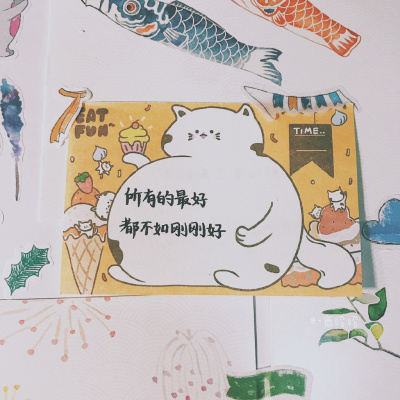 EAT
FUN~
TIME..
所有的最好
都不如刚刚好